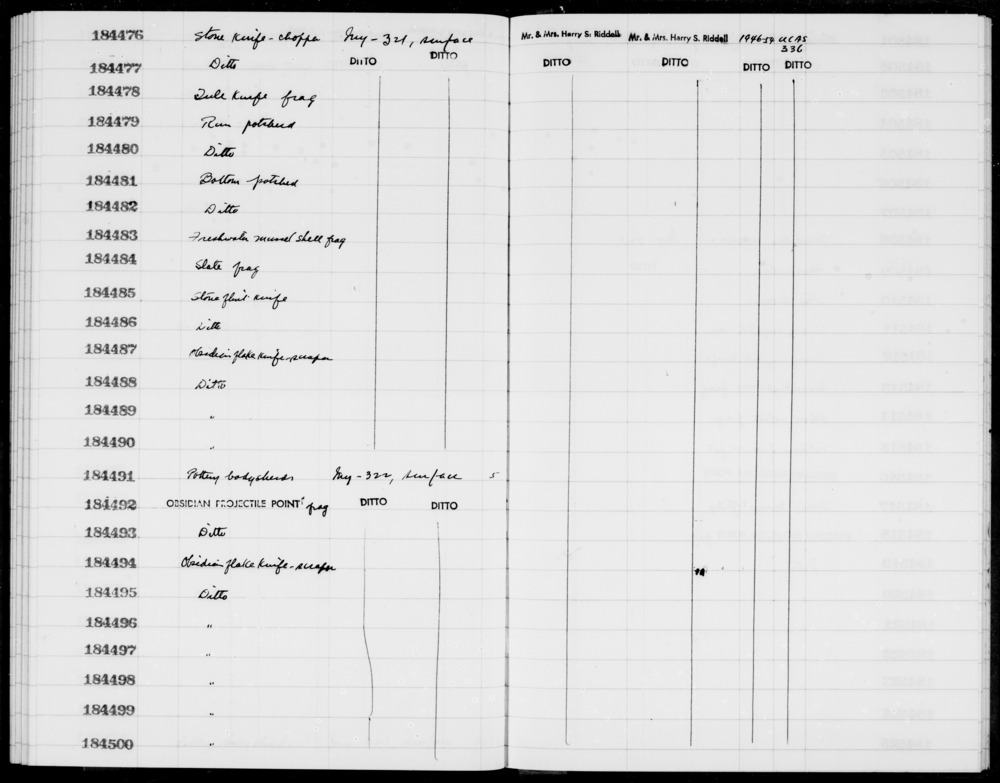 184476 Stone Knife-chopper Iny-321, surface Mr. & Mrs. Harry S. Riddell Mr. & Mrs. Harry S. Riddell 1946-54 UCAS 336
184477 Ditto DITTO DITTO DITTO DITTO DITTO DITTO
184478 Knife frag
184479 Rim potsherd
184480 Ditto
184481 Bottom potsherd
184482 Ditto
184483 Freshwater mussel shell frag
184484 Slate frag
184485 Stone flint knife
184486 Ditto
184487 Obsidian flake knife-scraper
184488 Ditto
184489 "
184490 "
184491 Pottery bodysherds Iny-322, surface 5
184492 OBSIDIAN PROJECTILE POINT frag DITTO DITTO
184493 Ditto
184494 Obsidian flake knife-scraper
184495 Ditto
184496 "
184497 "
184498 "
184499 "
184500 "